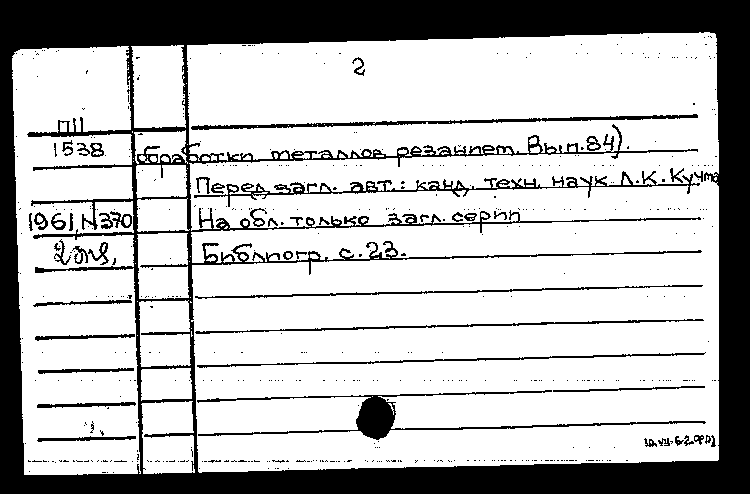 2
П11
1538 обработки металлов резанием. Вып. 84).
Перед загл. авт.: канд. техн. наук Л.К. Кучма
1961, N370 На обл. только загл. серии
2 экз. Библиогр. с. 23.